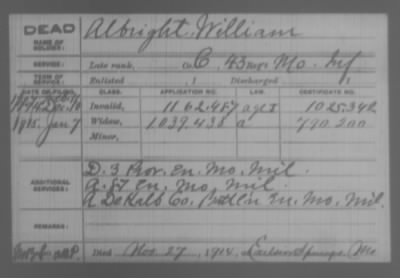 DEAD Albright, William
NAME OF SOLDIER:
SERVICE: Late rank, Co. C, 43 Regt Mo. Inf
TERM OF SERVICE: Enlisted 1 Discharged 1
DATE OF FILING. CLASS. APPLICATION NO. LAW. CERTIFICATE NO.
Invalid, 1162.457 1025.342
1915. Jan 7 Widow, 1039.438 a 790.200
Minor,
D. 3 Prov. En. Mo. Mil.
ADDITIONAL SERVICES: En. Mo. Mil.
A DeKalb Co. Battl'n En. Mo. Mil.
REMARKS:
Died Nov. 27, 1914, Springs, Mo